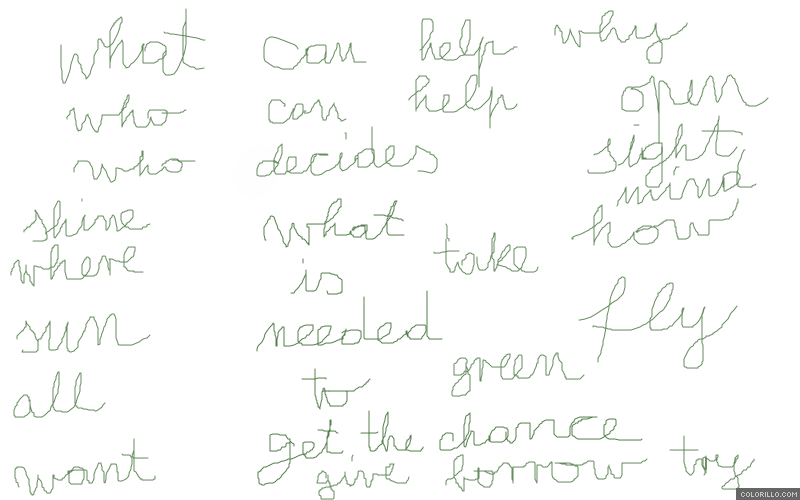 what can help why
who can help open
who decides sight
mind
shine what how
where take
is
sun needed fly
green
all to
get the chance
want give borrow try
COLORILLO.COM